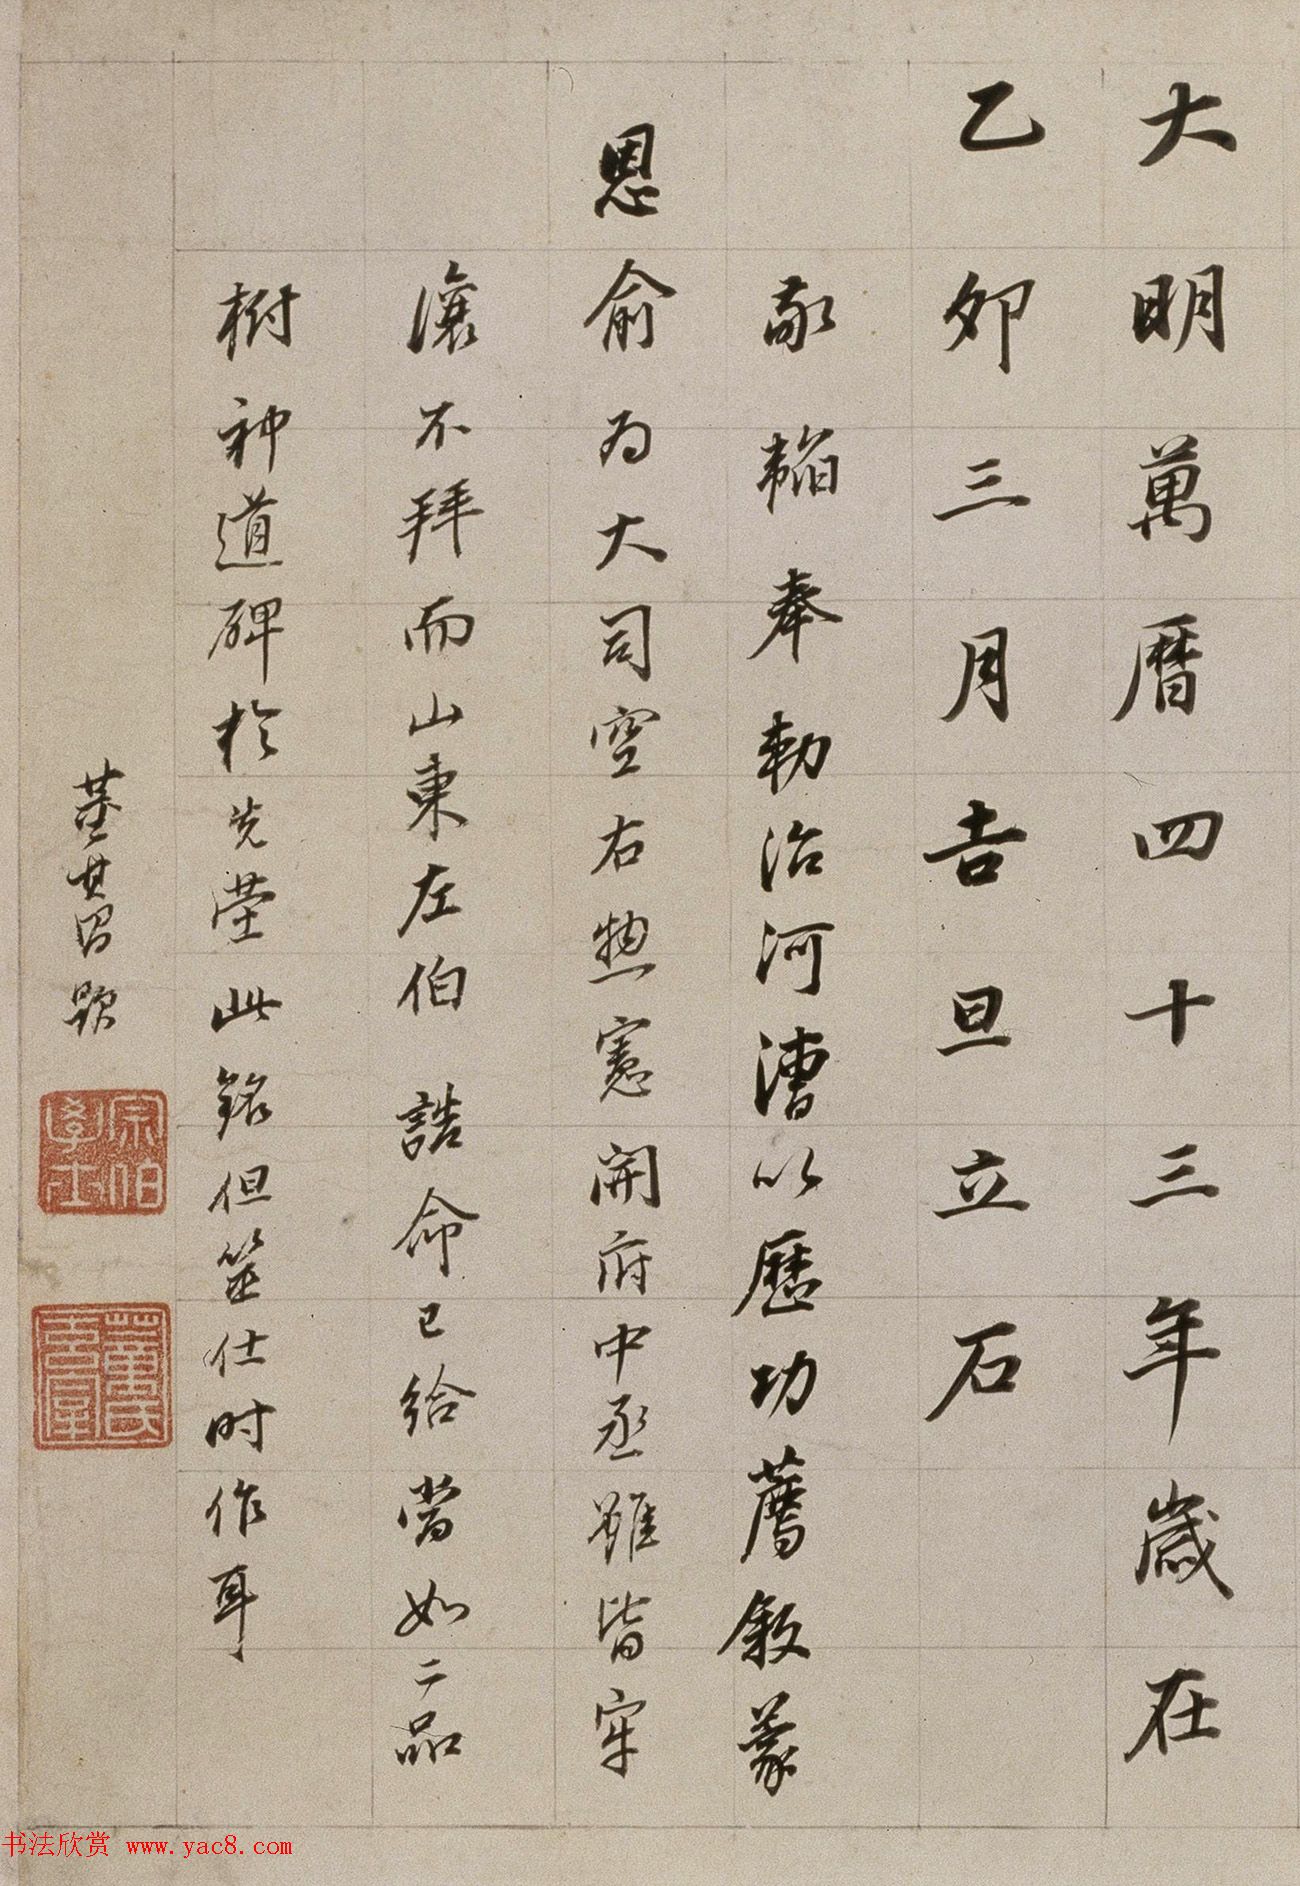 大明萬曆四十三年歲在
乙卯三月吉旦立石
敬韜奉勑治河漕以歷功薦敘蒙
恩俞為大司空右揔憲開府中丞雖皆牢
讓不拜而山東左伯誥命已給當如二品
樹神道碑於先塋此銘但筮仕時作耳
董其昌題
宗伯學士
董氏玄宰
书法欣赏 www.yac8.com